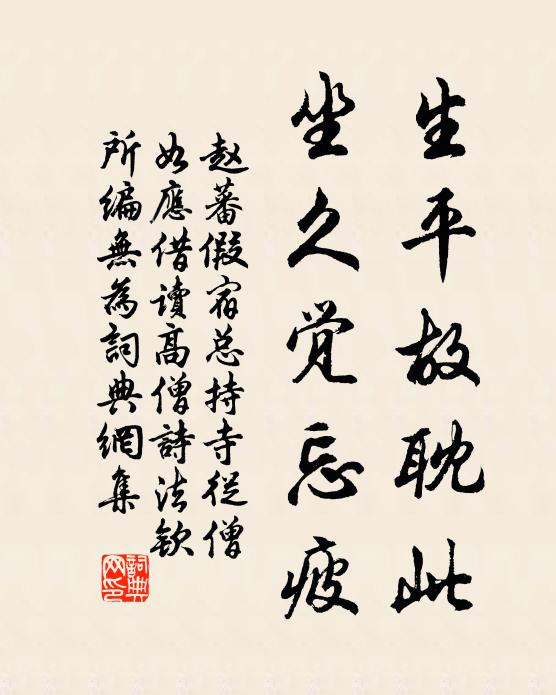 生平故耽此
坐久觉忘疲
赵蕃假宿总持寺从僧
如应借读高僧诗法钦
所编无为词典网集
词典网印